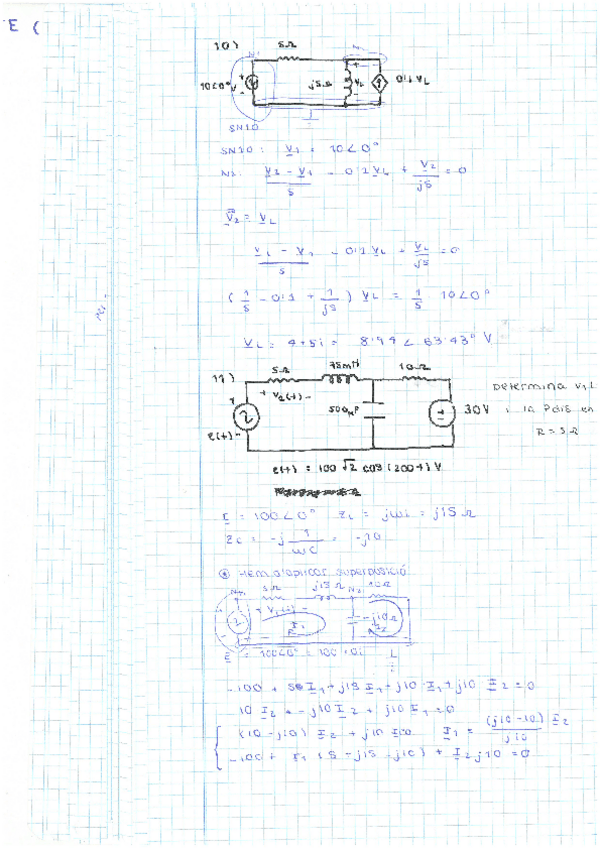 E (
10)
5Ω
10∠0° V
j5Ω
VL
0'1 VL
SN10
SN10: V1 = 10∠0°
N2: V2 - V1 / 5 - 0'1 VL + V2 / j5 = 0
V2 = VL
VL - V1 / 5 - 0'1 VL + VL / j5 = 0
(1/5 - 0'1 + 1/j5) VL = 1/5 10∠0°
VL = 4+8i = 8'94 ∠ 63'43° V
11)
5Ω
75mH
10Ω
+ V2(t) -
500μF
e(t)
30V
Determina
R = 5Ω
e(t) = 100 √2 cos (200t) V
E = 100∠0° ZL = jωL = j15Ω
Zc = -j 1/ωC = -j10
Hem d'aplicar superposició
5Ω
j15Ω
N2
10Ω
+ V1(t) -
I1
-j10Ω
I2
E = 100∠0° = 100 + 0i
-100 + 5 I1 + j15 I1 - j10 I1 + j10 I2 = 0
10 I2 - j10 I2 + j10 I1 = 0
(10 - j10) I2 + j10 I1 = 0 I1 = (j10 - 10) I2 / j10
-100 + I1 (5 + j15 - j10) + I2 j10 = 0